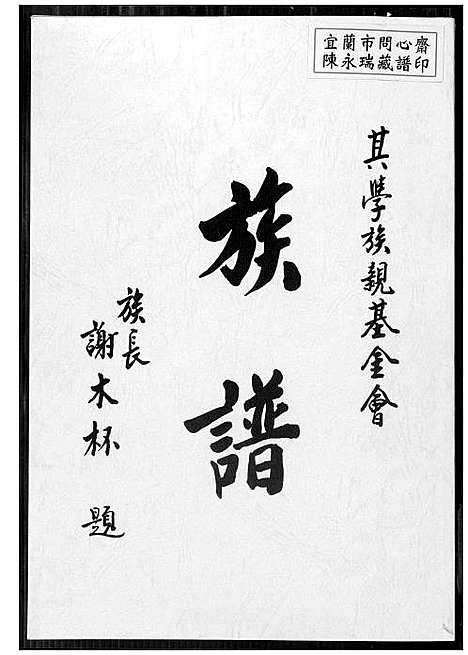 宜蘭市問心齋
陳永瑞藏譜印
其學族親基金會
族譜
族長
謝木杯 題